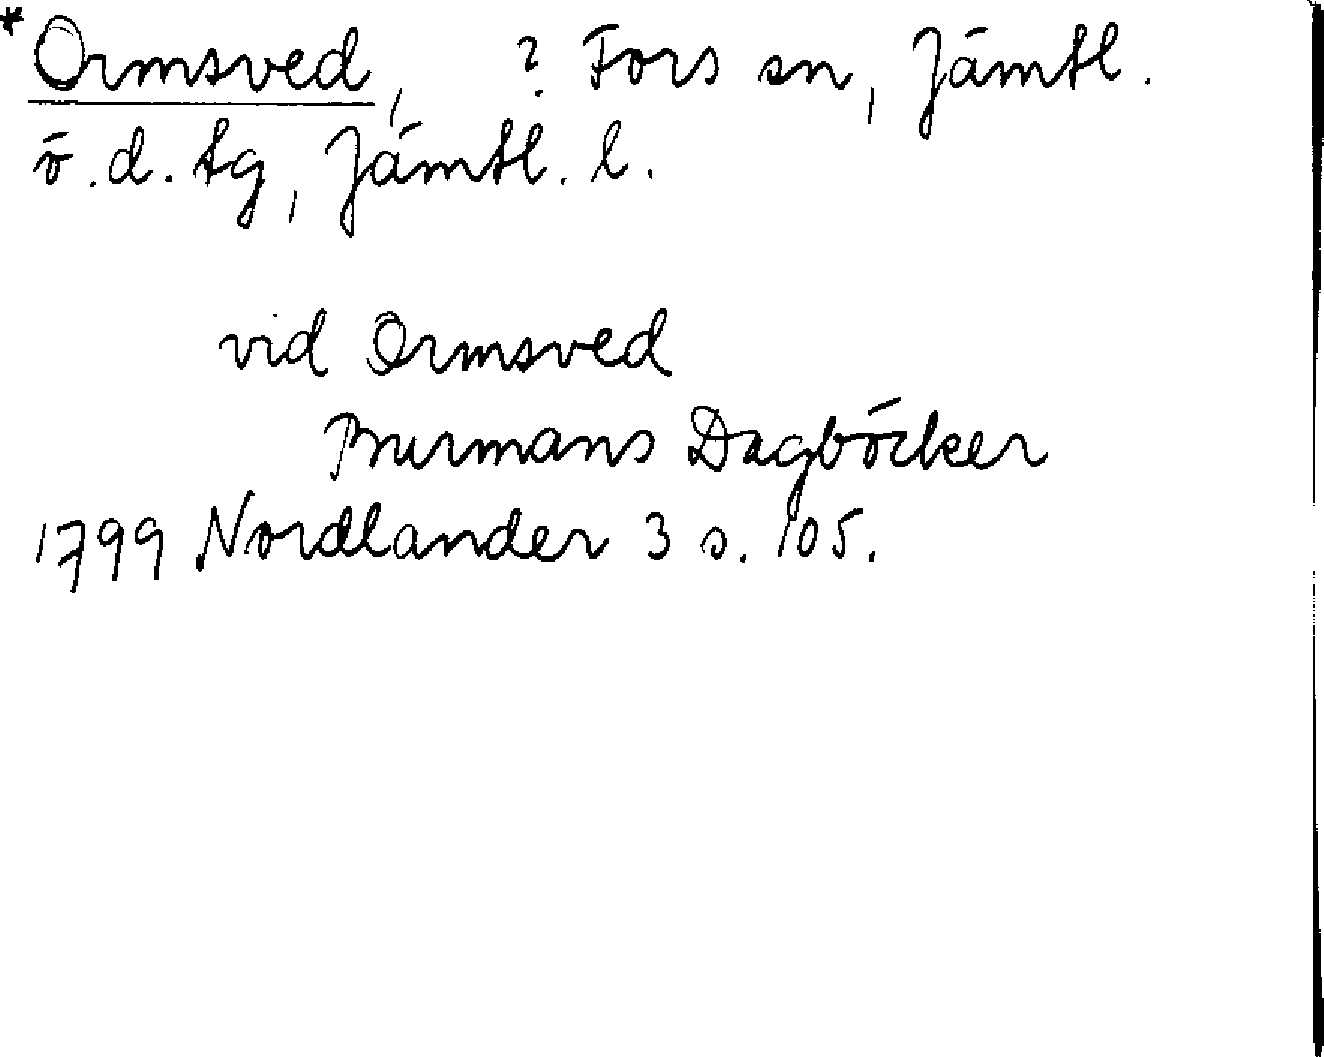 *Ormsved, ? Fors sn, Jämtl.
ö.d. tg, Jämtl. l.
vid Ormsved
Burmans Dagböcker
1799 Nordlander 3 s. 105.